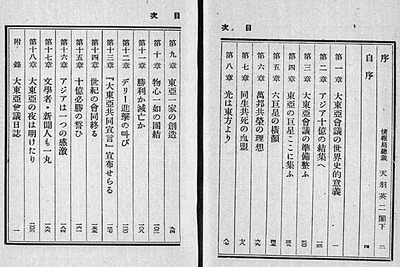 目次
序 情報局總裁 天羽英二閣下 三
自序 四
第一章 大東亞會議の世界史的意義 一
第二章 アジア十億の結集へ
第三章 大東亞會議の準備整ふ
第四章 東亞の巨星ここに集ふ
第五章 六巨星の橫顏
第六章 萬邦共榮の理想
第七章 同生共死の血盟
第八章 光は東方より
目次
第九章 東亞一家の創造
第十章 物心一如の團結
第十一章 勝利か滅亡か
第十二章 デリー進擊の叫び
第十三章 『大東亞共同宣言』宣布せらる
第十四章 世紀の會同終る
第十五章 十億必勝の誓ひ
第十六章 アジアは一つの感激
第十七章 文學者・新聞人も一丸
第十八章 大東亞の夜は明けたり
附錄 大東亞會議日誌 一